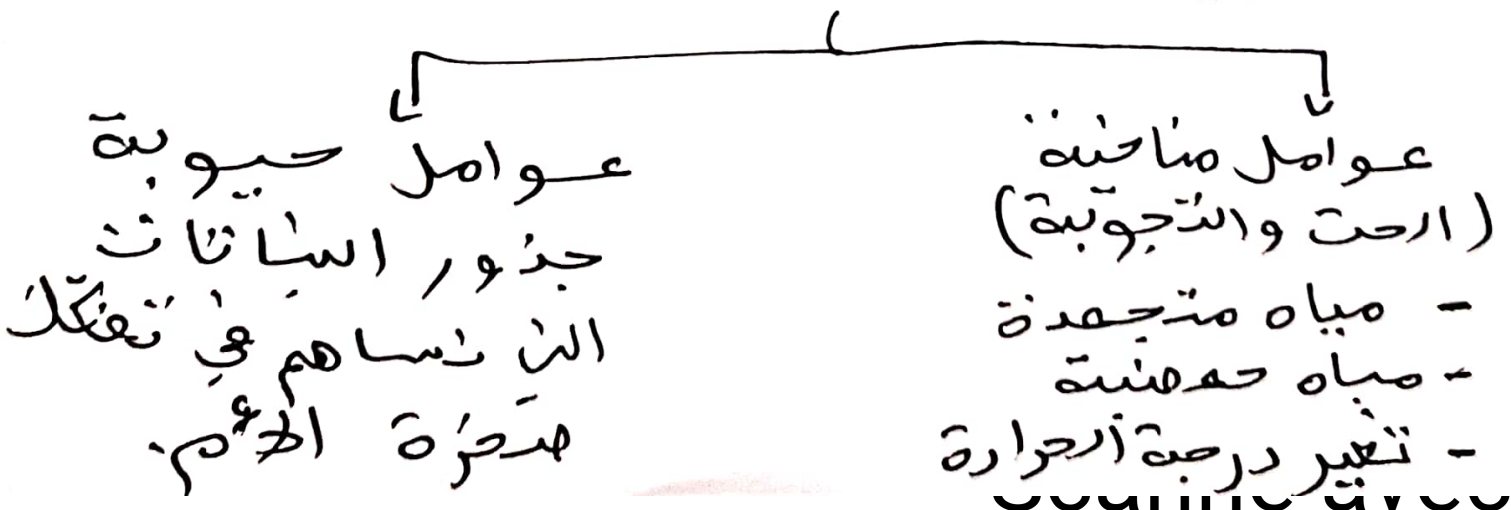 عوامل مناخية
(الحت والتجوية)
- مياه متجمدة
- مياه حمضية
- تغير درجة الحرارة
عوامل حيوية
جذور النباتات
التي تساهم في تفكك
صخرة الأم.
Scanné avec